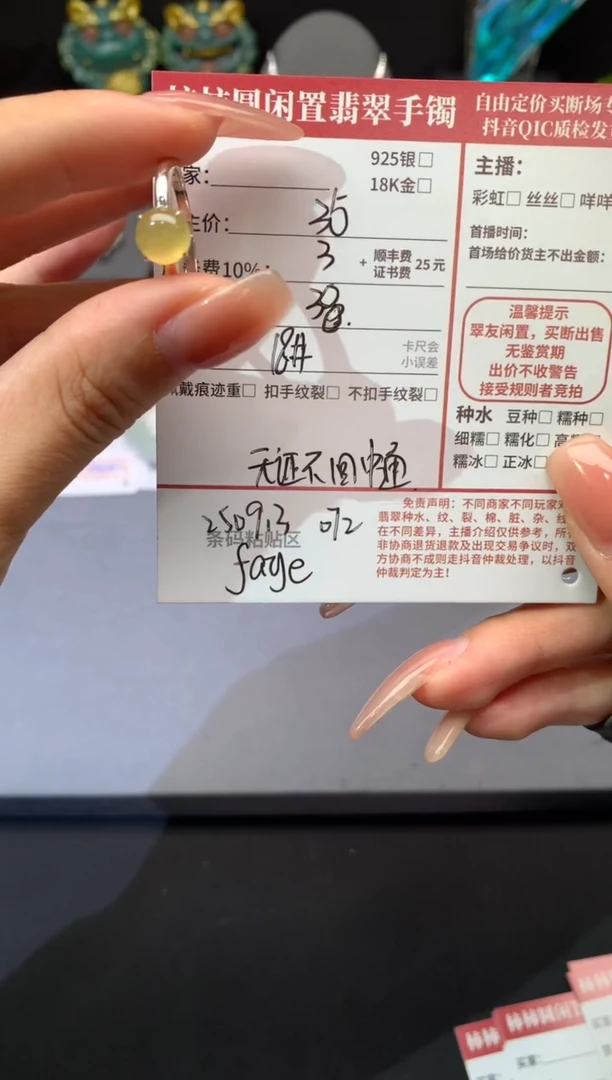 柿柿圆闲置翡翠手镯
自由定价买断场
抖音QIC质检发
925银□
家：
18K金□
主价： 35
费10%： 3 + 顺丰费 证书费 25元
38
18#
卡尺会
小误差
戴痕迹重□ 扣手纹裂□ 不扣手纹裂□
无证不回
250913 072
条码粘贴区
faye
主播：
彩虹□ 丝丝□ 咩咩
首播时间：
首场给价货主不出金额：
温馨提示
翠友闲置，买断出售
无鉴赏期
出价不收警告
接受规则者竞拍
种水 豆种□ 糯种□
细糯□ 糯化□ 高
糯冰□ 正冰□
免责声明：不同商家不同玩家对
翡翠种水、纹、裂、棉、脏、杂、线
在不同差异，主播介绍仅供参考，所
非协商退货退款及出现交易争议时，双
方协商不成则走抖音仲裁处理，以抖音
仲裁判定为主！
柿柿
柿柿圆闲
买家：